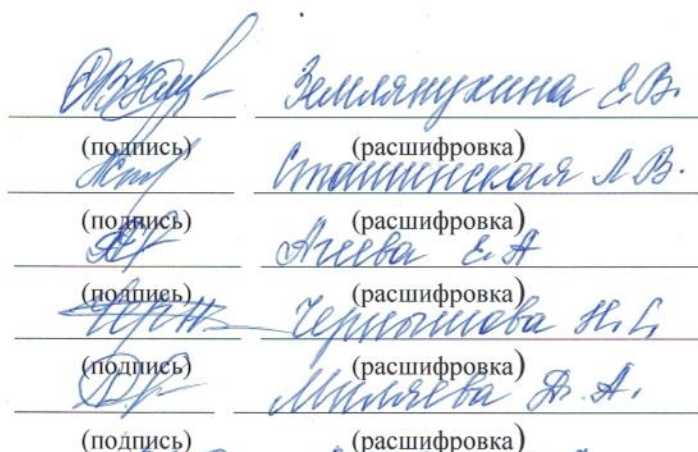 Землянухина Е.В.
(подпись) (расшифровка)
Сташинская Л.В.
(подпись) (расшифровка)
Агеева Е.А
(подпись) (расшифровка)
Чернышова Н.С.
(подпись) (расшифровка)
Миляева Д.А.
(подпись) (расшифровка)